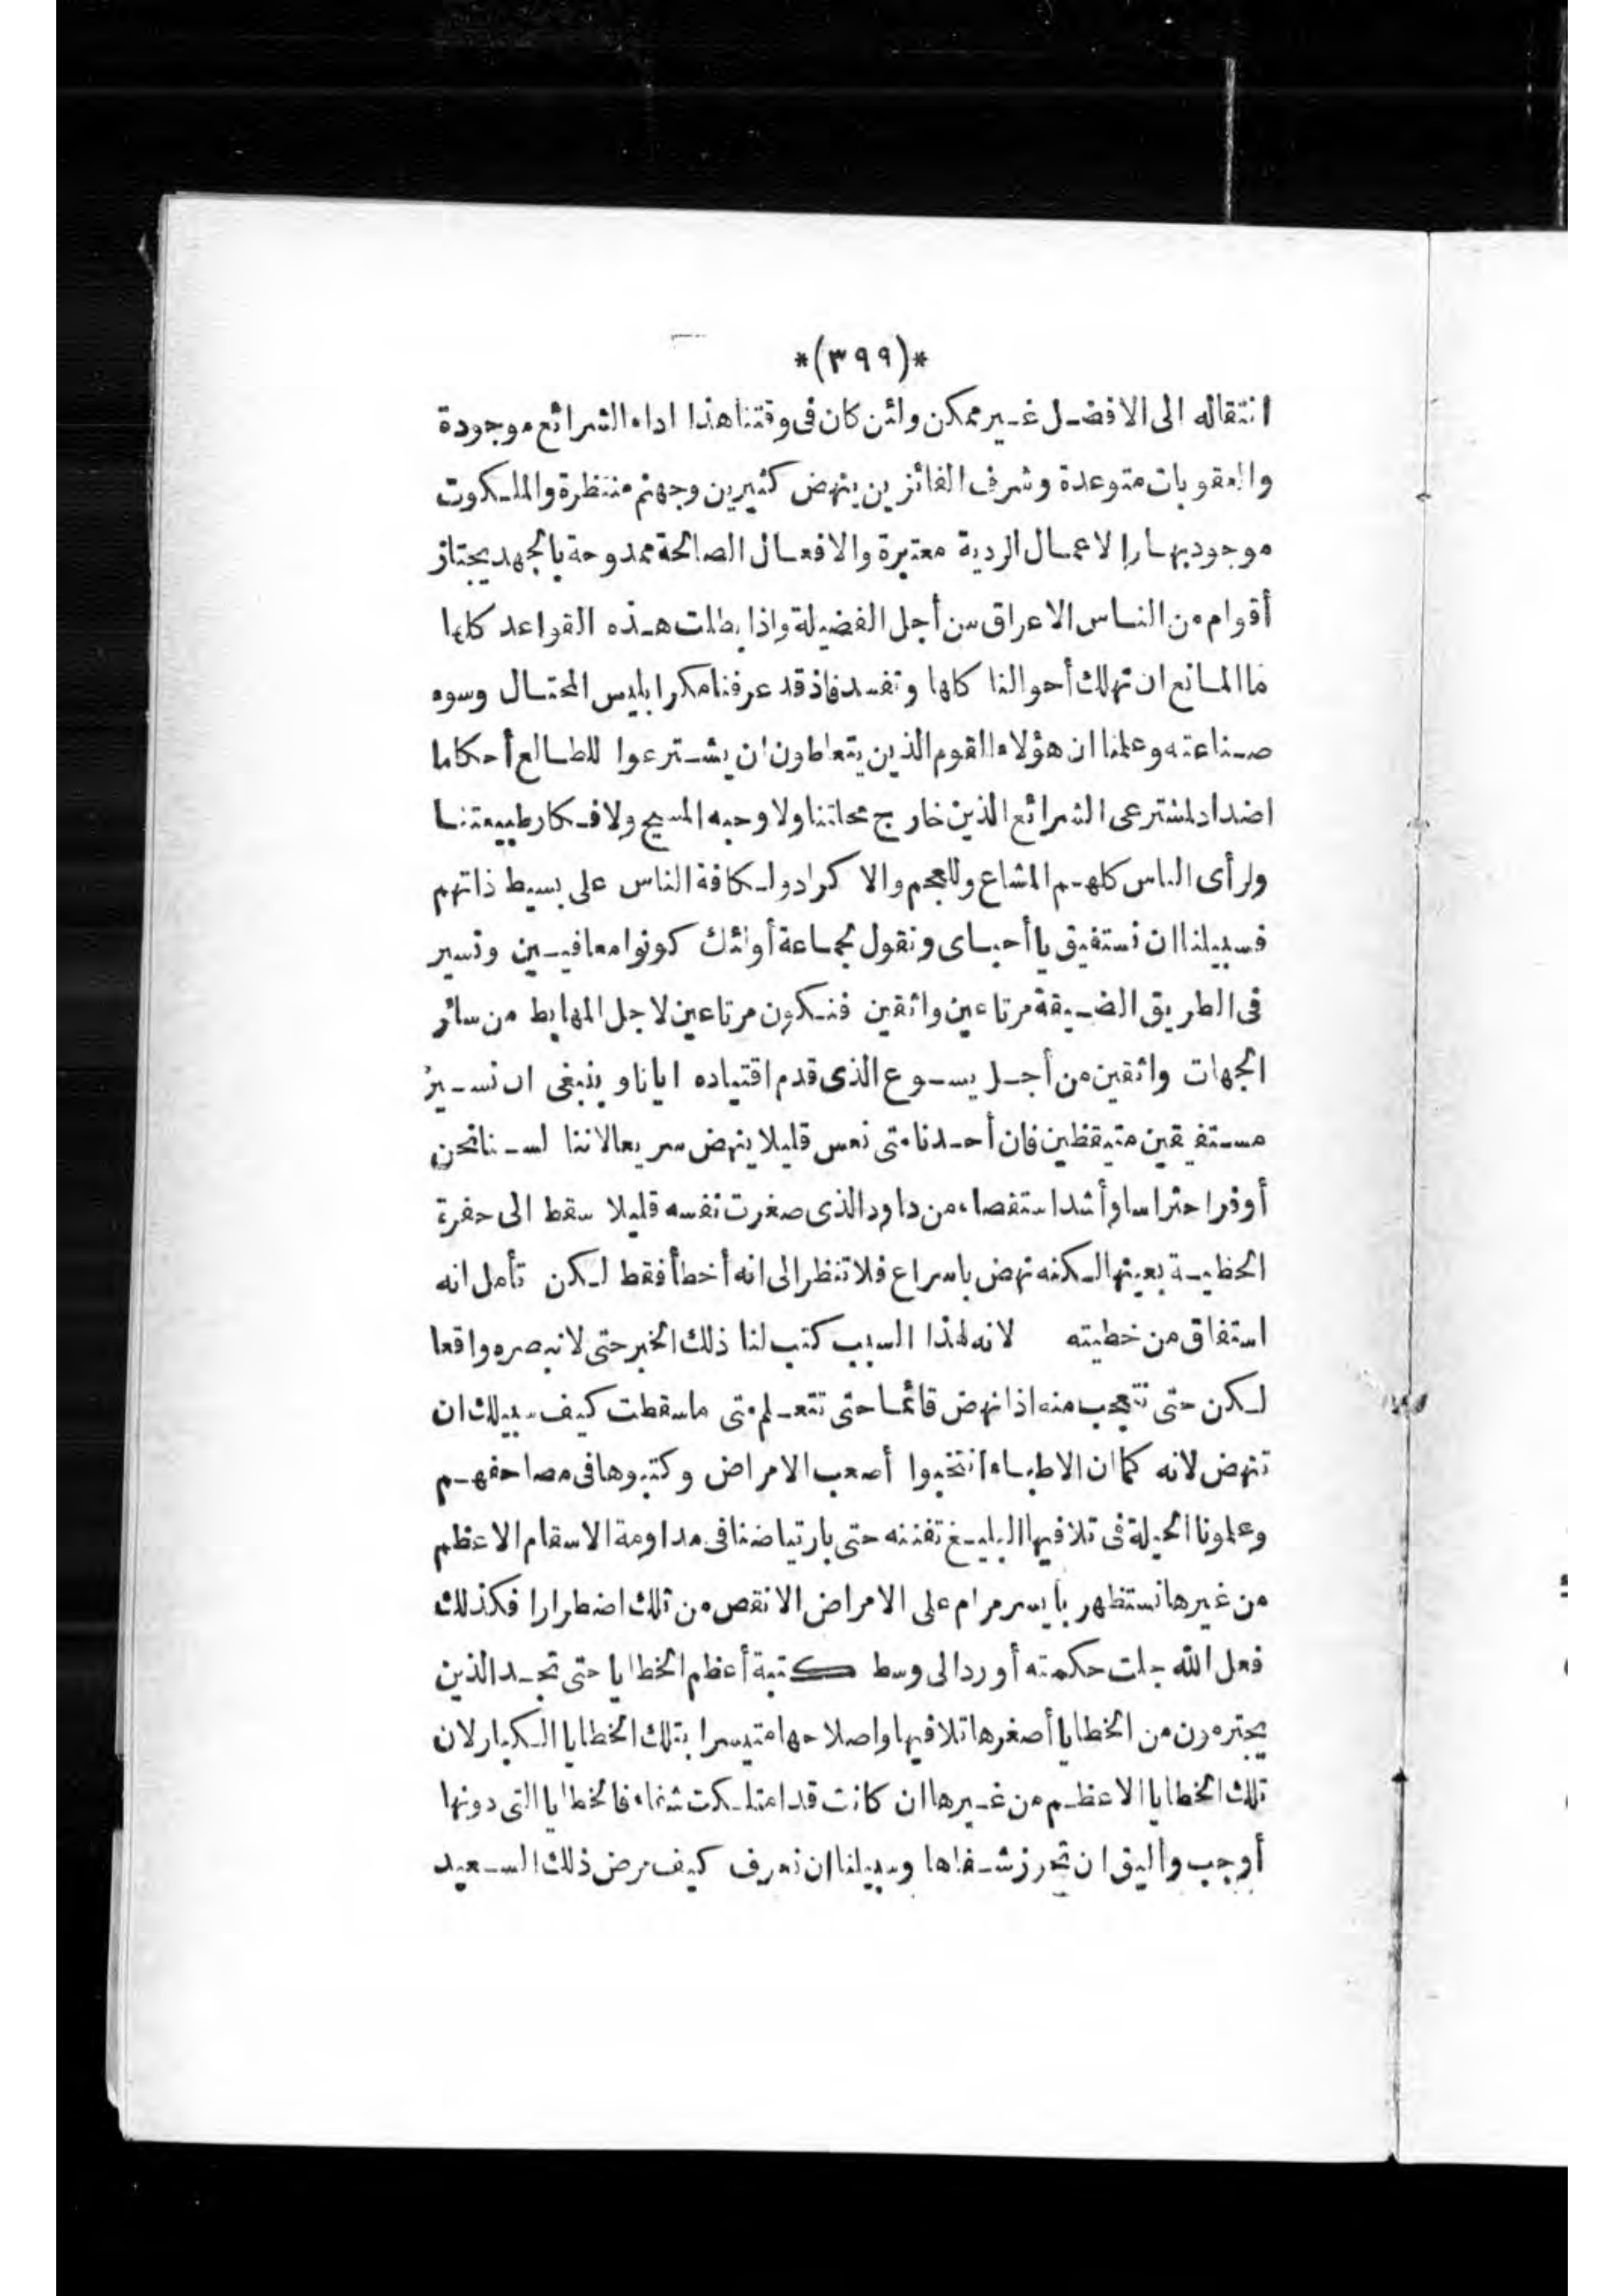 *(٣٩٩)*
انتقاله الى الافضل غير ممكن ولئن كان فى وقتنا هذا اداء الشرائع موجودة
والعقوبات متوعدة وشرف الفائزين ينهض كثيرين وجهنم منتظرة والملكوت
موجود بهارا لاعمال الردية معتبرة والافعال الصالحة ممدوحة بالجهد يجتاز
أقوام من الناس الاعراق من أجل الفضيلة واذا بطلت هذه القواعد كلها
ما المانع ان تهلك أحوالنا كلها وتفسد فاذ قد عرفنا مكر ابليس المحتال وسوء
صناعته وعلمنا ان هؤلاء القوم الذين يتعاطون ان يشترعوا للطالع أحكاما
اضداد لمشترعى الشرائع الذين خارج محلتنا ولاوحيه المسيح ولافكار طبيعتنا
ولرأى الناس كلهم المشاع وللعجم والاكراد ولكافة الناس على بسيط ذاتهم
فسبيلنا ان نستفيق يا أحباى ونقول لجماعة أولئك كونوا معافيين ونسير
فى الطريق الضيقة مرتاعين واثقين فنكون مرتاعين لاجل المهابط من سائر
الجهات واثقين من أجل يسوع الذى قدم اقتياده ايانا وينبغى ان نسير
مستفيقين متيقظين فان أحدنا متى نعس قليلا ينهض سريعا لاننا لسنا نحن
أوفر احتراسا وأشد استقصاء من داود الذى صغرت نفسه قليلا سقط الى حفرة
الخطية بعينها لكنه نهض باسراع فلا تنظر الى انه أخطأ فقط لكن تأمل انه
استفاق من خطيته لانه لهذا السبب كتب لنا ذلك الخبر حتى لانبصره واقعا
لكن حتى نتعجب منه اذا نهض قائما حتى تتعلم متى ماسقطت كيف سبيلك ان
تنهض لانه كما ان الاطباء انتخبوا أصعب الامراض وكتبوها فى مصاحفهم
وعلمونا الحيلة فى تلافيها البليغ تفننه حتى بارتياضنا فى مداومة الاسقام الاعظم
من غيرها نستظهر بأيسر مرام على الامراض الانقص من تلك اضطرارا فكذلك
فعل الله جلت حكمته أورد الى وسط كتبة أعظم الخطايا حتى تجد الذين
يجترمون من الخطايا أصغرها تلافيها واصلاحها متيسرا بتلك الخطايا الكبار لان
تلك الخطايا الاعظم من غيرها ان كانت قد امتلكت شفاء فالخطايا التى دونها
أوجب واليق ان تحرز شفاها وسبيلنا ان نعرف كيف مرض ذلك السعيد